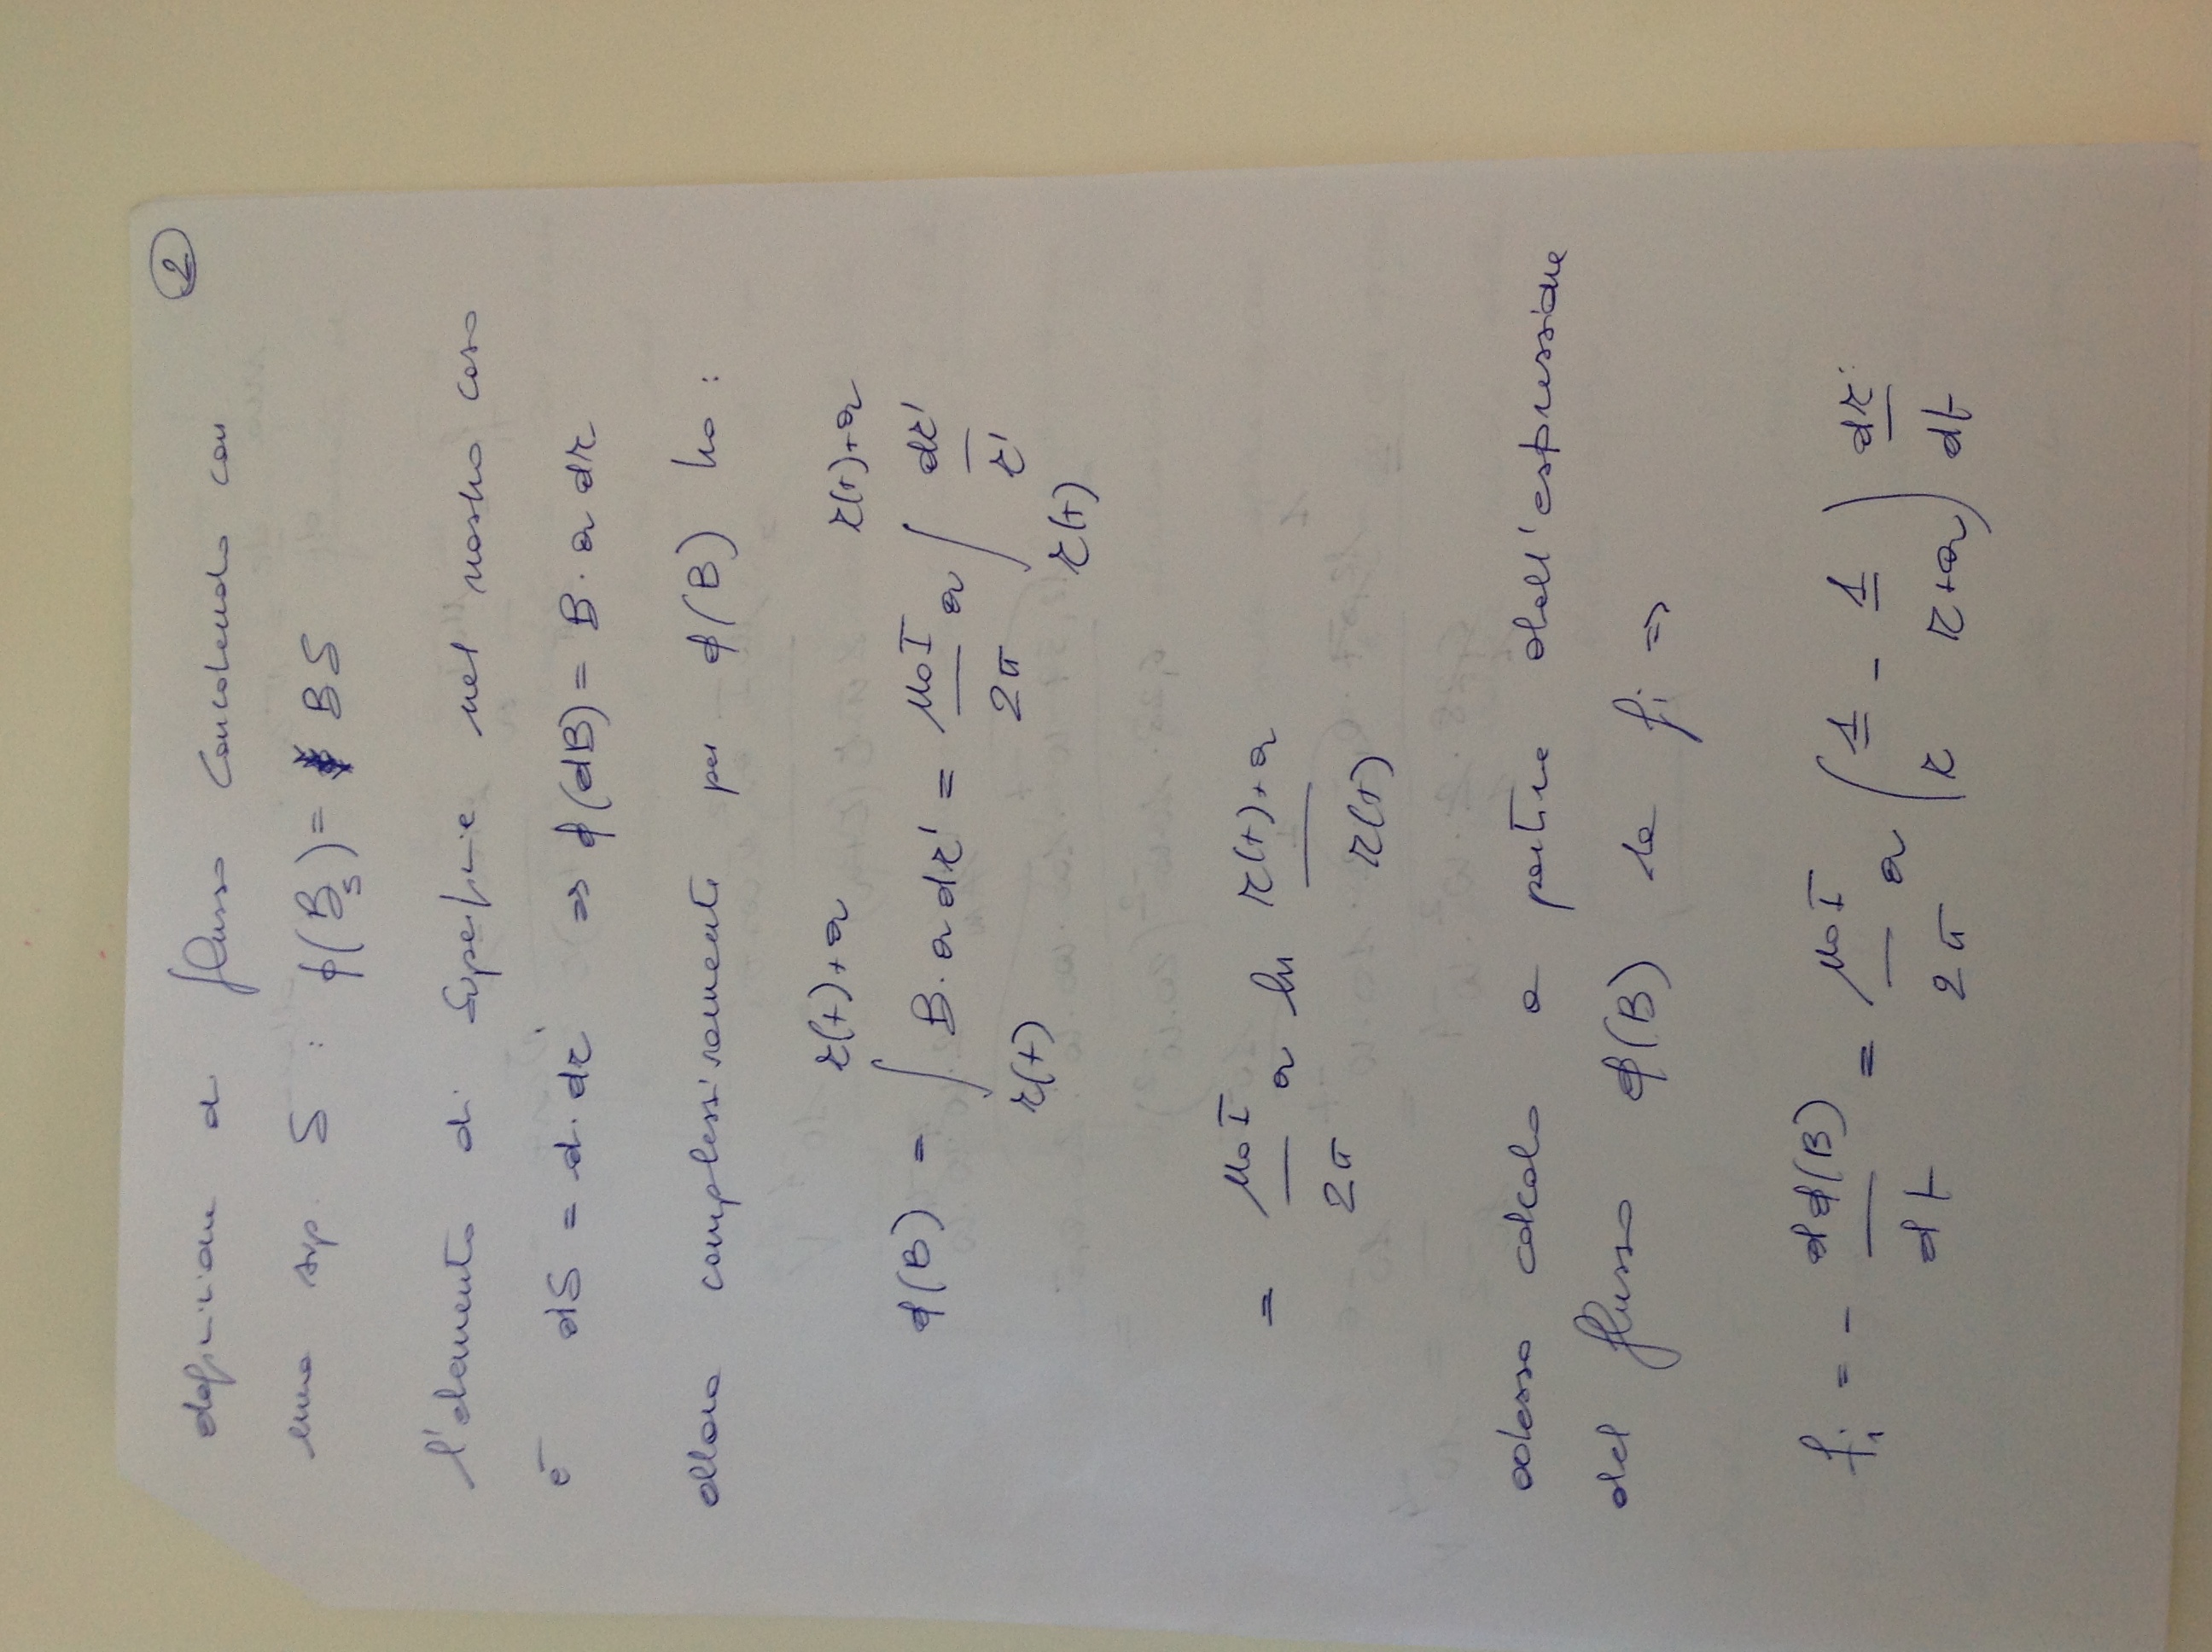 2
definizione di flusso concatenato con
una sup. S : ϕ(B_S) = BS
l'elemento di superficie nel nostro caso
è dS = a · dr ⇒ ϕ(dB) = B · a dr
allora complessivamente per ϕ(B) ho :
ϕ(B) = ∫_{r(t)}^{r(t)+a} B · a dr' = μ₀I/2π a ∫_{r(t)}^{r(t)+a} dr'/r'
= μ₀I/2π a ln (r(t)+a)/r(t)
adesso calcolo a partire dall'espressione
del flusso ϕ(B) la fi ⇒
fi = - dϕ(B)/dt = μ₀I/2π a (1/r - 1/(r+a)) dr/dt